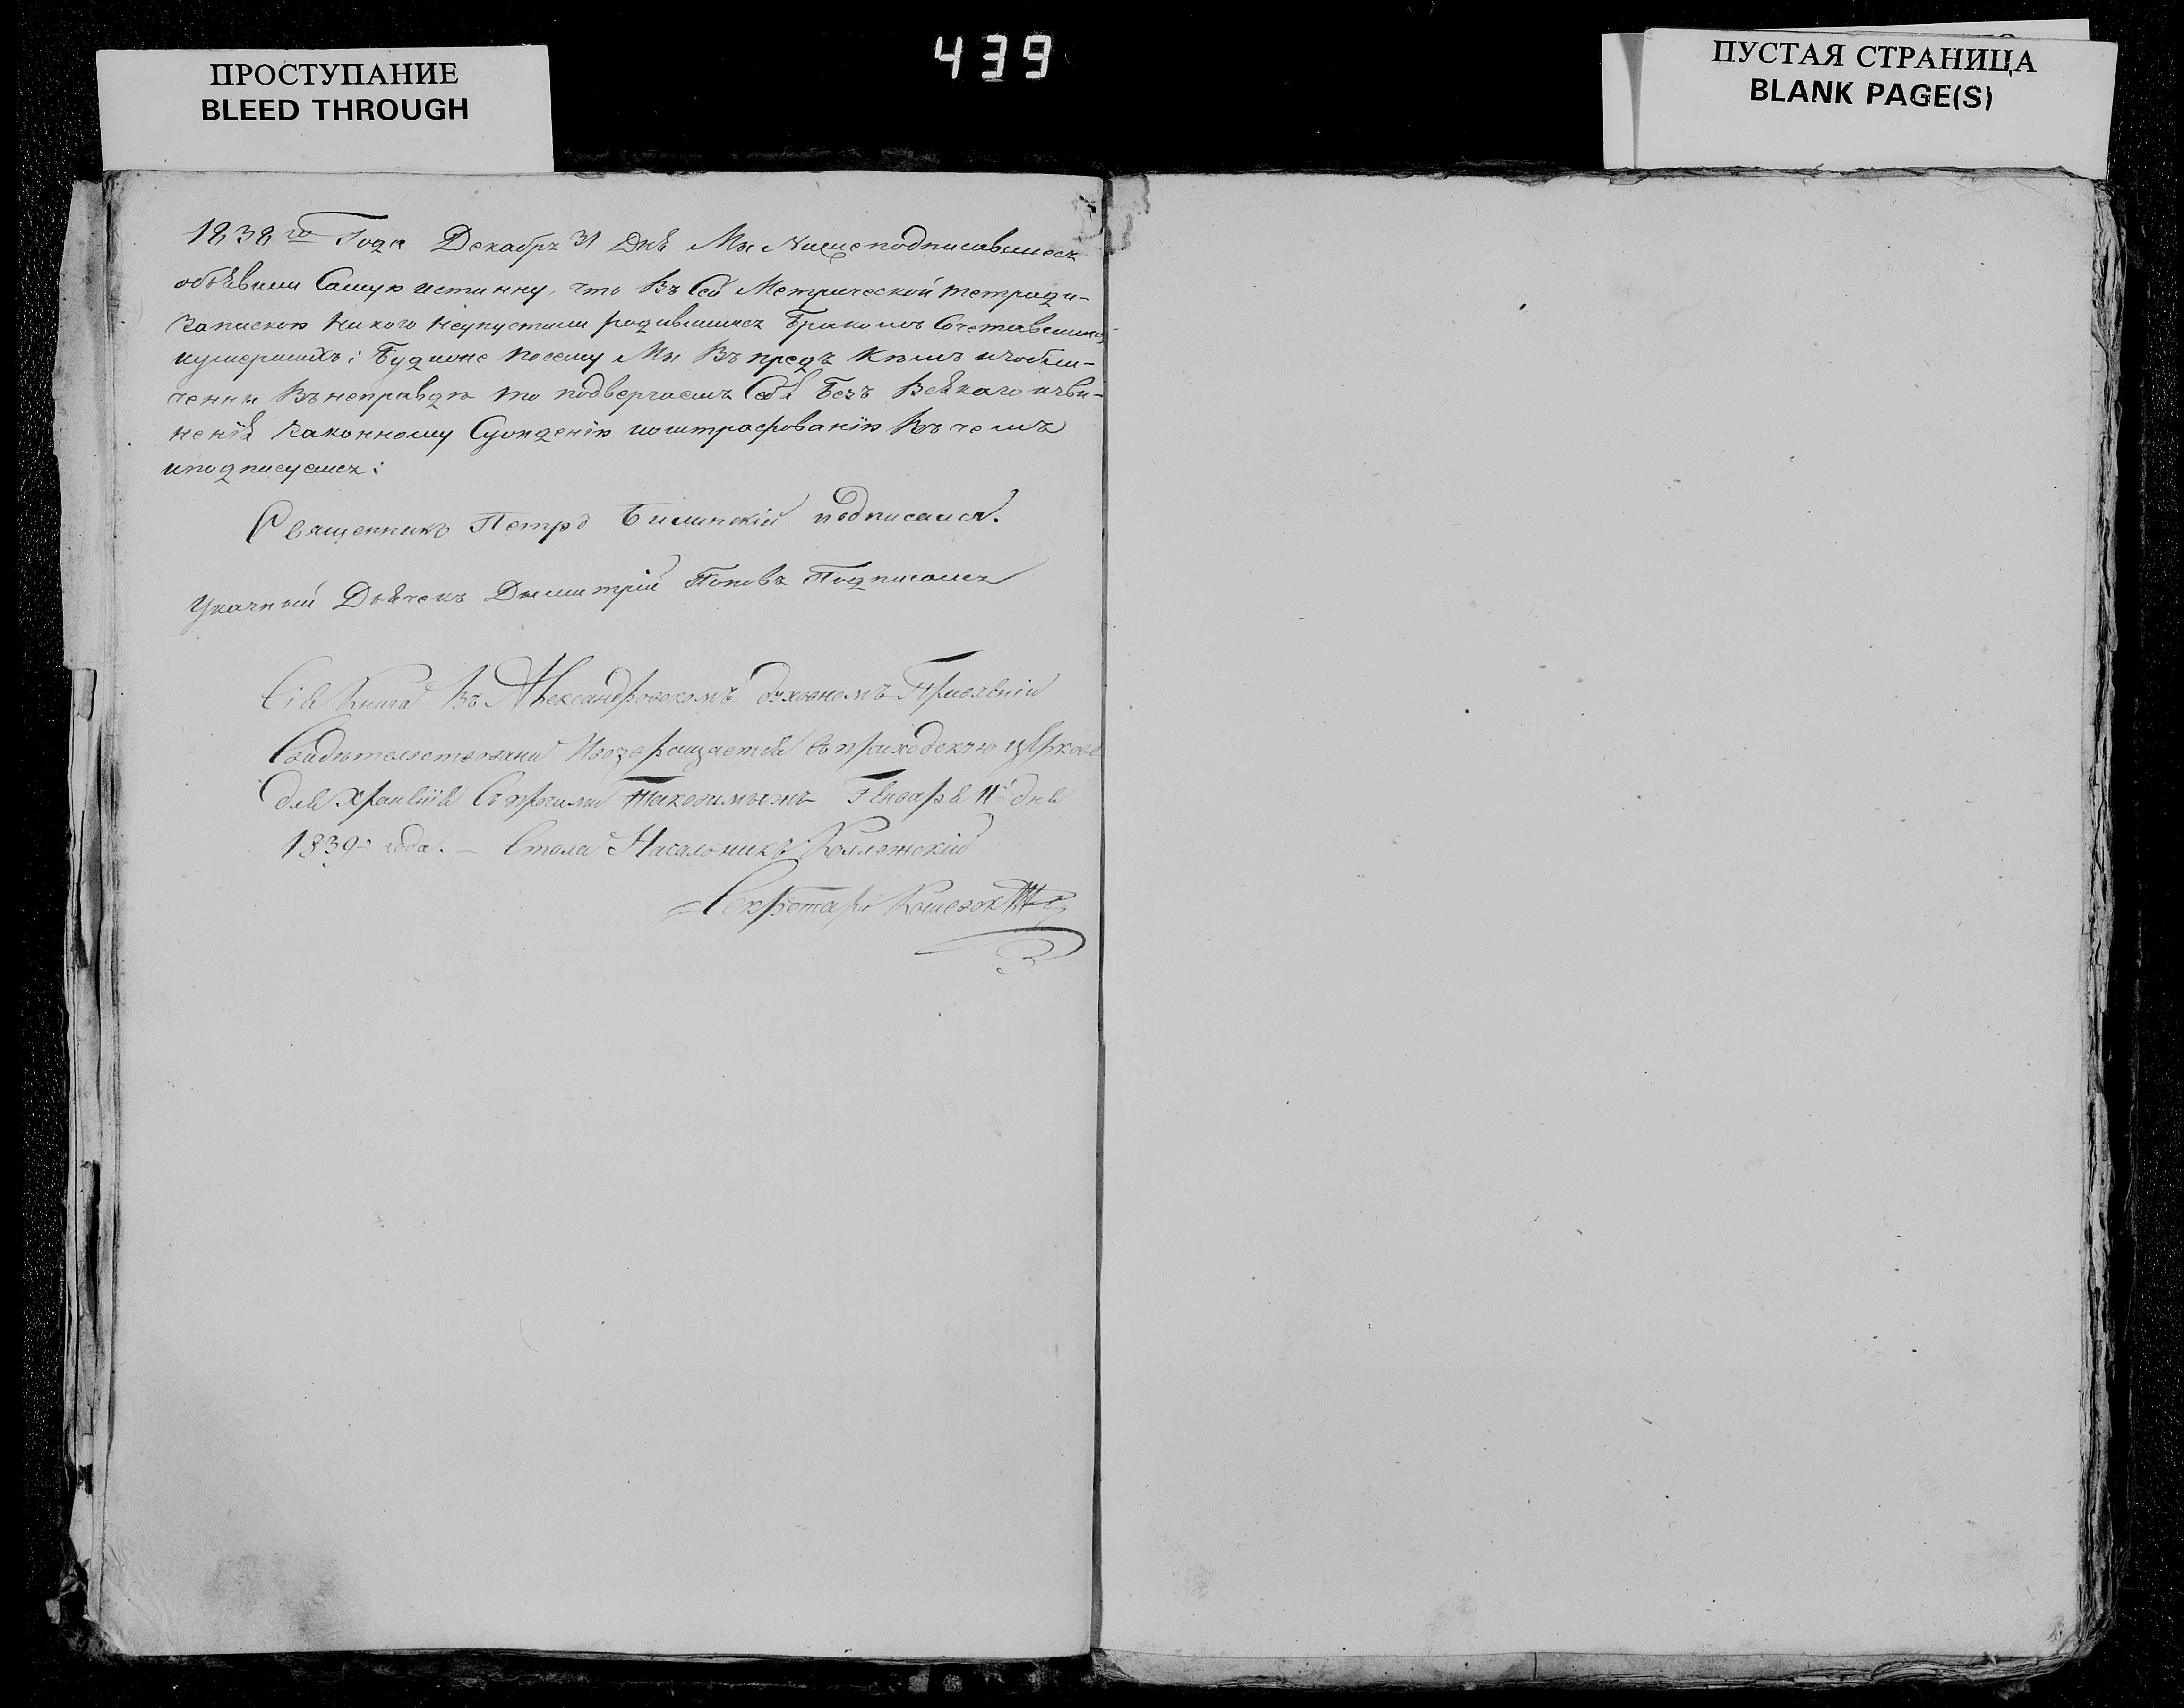 ПРОСТУПАНИЕ
BLEED THROUGH
439
ПУСТАЯ СТРАНИЦА
BLANK PAGE(S)
1838го Года Декабрѧ 31 Дня Мы Нижеподписавшиесѧ
объявили Самую истинну, что Въ Сей Метрической тетради-
Запискою Никого Неупустили родившихсѧ Бракомъ Сочетавшихсѧ
иумершихъ: Будиже Посему Мы Въпредъ Кѣмъ изобли-
ченны Вънеправдѣ то подвергаемъ Себя Безъ Всякаго изви-
ненія Законному Сужденію иоштрафованію Въ чемъ
иподписуемсѧ:
Священникъ Петръ Билинскій подписался.
Указный Дьячекъ Димитрій Поповъ Подписалсѧ
Сія Книга Въ Александровскомъ духовномъ Правленіи
Свидѣтельствована Ивозвращается въ приходскую церковь
для храненія Съ прочими Таковымижъ Генваря 11го дня
1839го года. — Стола Начальникъ Коллежскій
Секретарь